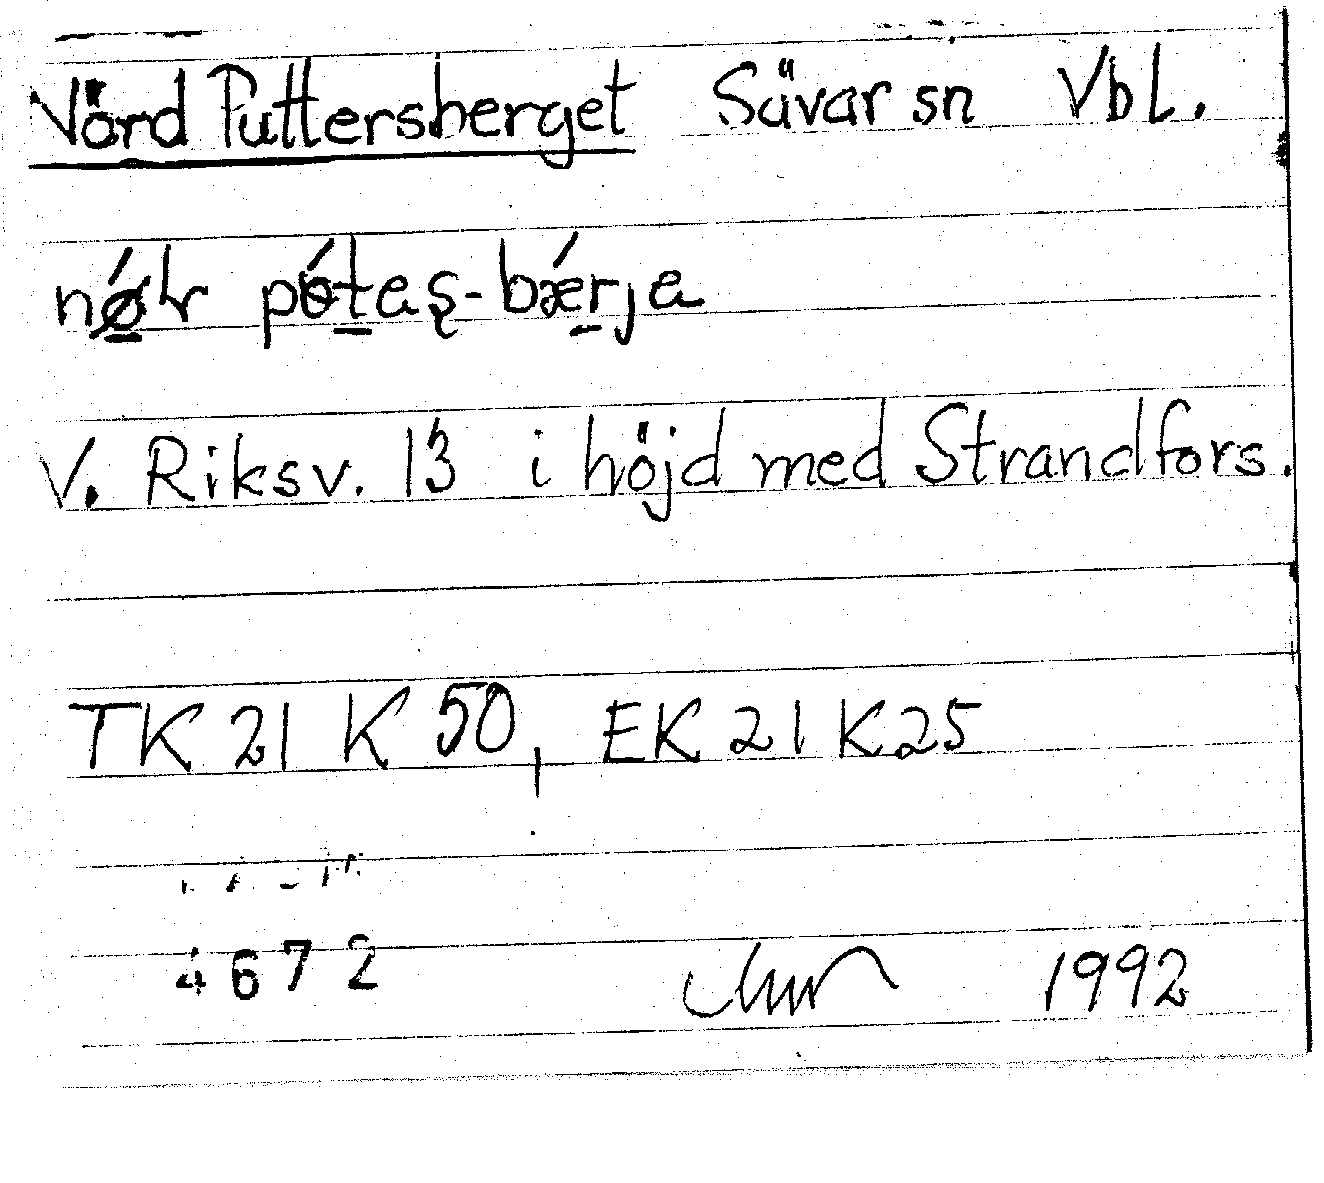 Nörd Puttersberget Sävar sn Vbl.
nǿ̱ḷr pó̵ṯaʂ-bǽṟja
V. Riksv. 13 i höjd med Strandfors.
TK 21 K 50, EK 21 K 25
4672 1992